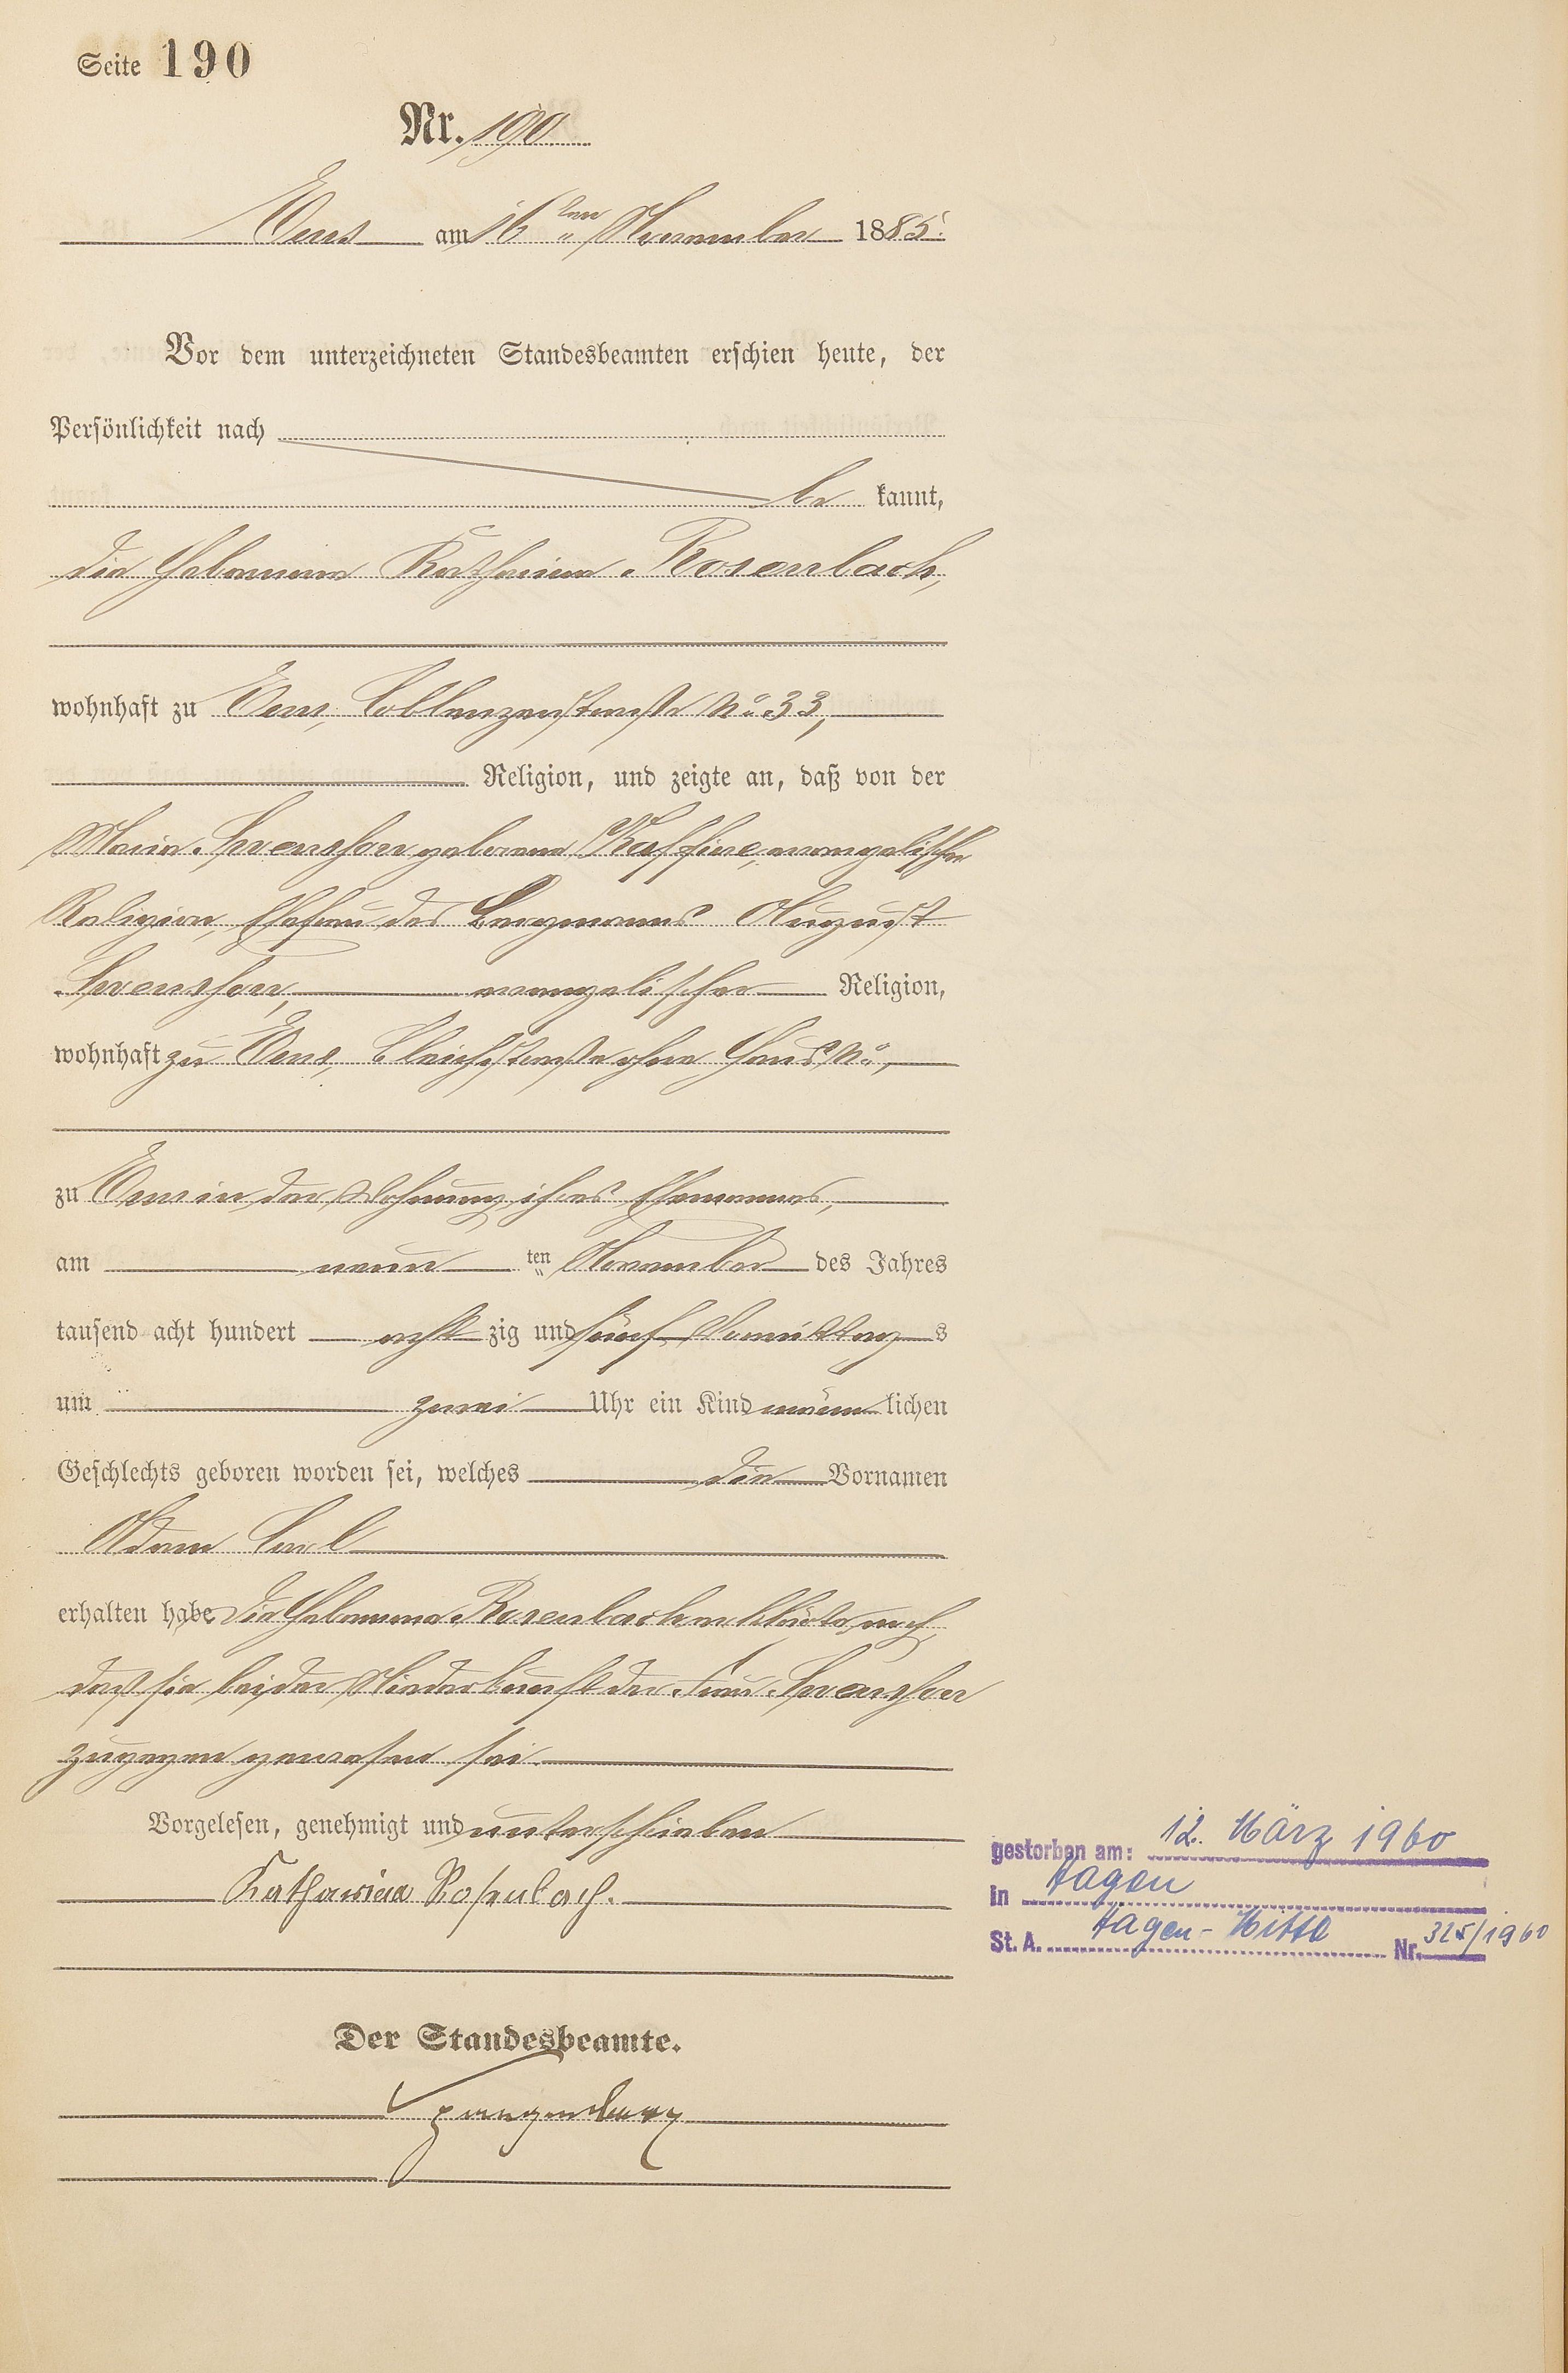 Seite 190
Nr. 190
Ems am 16ten November 1885.
Vor dem unterzeichneten Standesbeamten erschien heute, der
Persönlichkeit nach
be kannt,
die Hebamme Katharina Rosenbach,
wohnhaft zu Ems, Coblenzerstraße No 33,
Religion, und zeigte an, daß von der
Maria Svensson geborene evangelischer
Religion, Ehefrau des Bergmanns August
Svensson, evangelischer Religion,
wohnhaft zu Ems, Bleichstraße ohne Haus No,
zu Ems in der Wohnung ihres Ehemannes,
am neun ten November des Jahres
tausend acht hundert acht zig und fünf Vormittag s
um zwei Uhr ein Kind männ lichen
Geschlechts geboren worden sei, welches die Vornamen
Adam Carl
erhalten habe Die Hebamme Rosenbach erklärte noch,
daß sie bei der Niederkunft der Frau Svensson
zugegen gewesen sei
Vorgelesen, genehmigt und unterschrieben
Katharina Rosenbach.
gestorben am: 12. März 1960
in Hagen
St. A. Hagen-Mitte Nr. 325/1960
Der Standesbeamte.